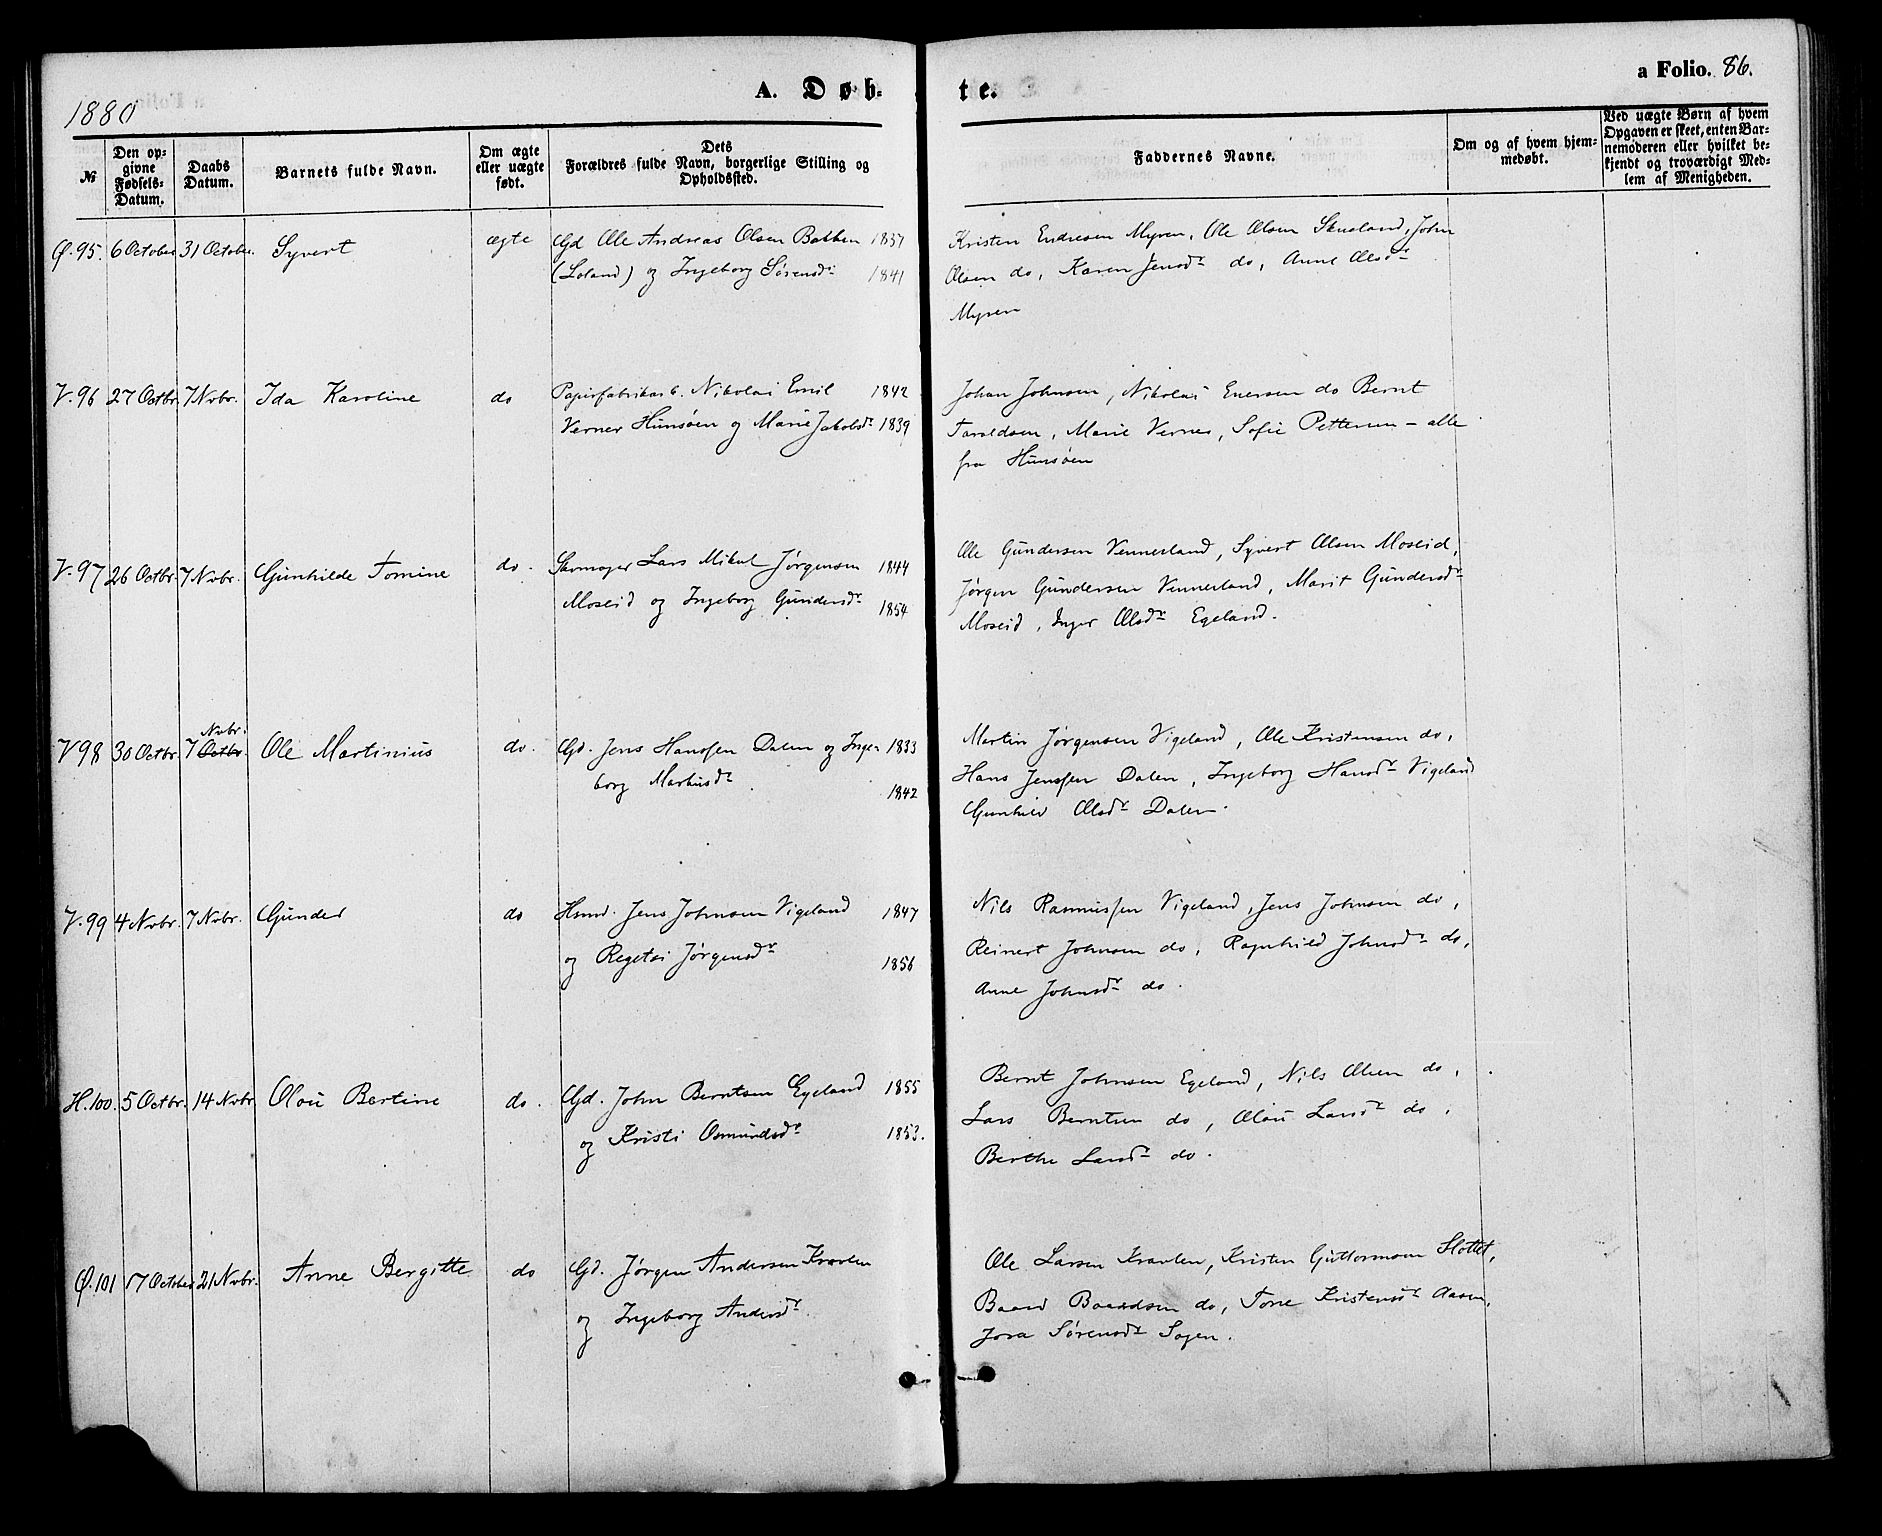 1880
A. Døb-
te.
a Folio. 86.
№
Den op-
givne
Fødsels-
Datum.
Daabs
Datum.
Barnets fulde Navn.
Om ægte
eller uægte
født.
Dets
Forældres fulde Navn, borgerlige Stilling og
Opholdssted.
Faddernes Navne.
Om og af hvem hjem-
medøbt.
Ved uægte Børn af hvem
Opgaven er skeet, enten Bar-
nemoderen eller hvilket be-
kjendt og troværdigt Med-
lem af Menigheden.
Ø. 95. 6 October 31 October. Syvert ægte Gd Ole Andreas Olsen Bakken 1837
(Loland) og Ingeborg Sørensdr 1841
Kristen Endresen Myren, Ole Olsen Skusland, John
Olsen do, Karen Jensdr do, Anne Olsdr
Myren
V. 96 27 Octbr. 7 Nvbr. Ida Karoline do Papirfabrikarb. Nikolai Emil 1842
Verner Hunsøen og Marie Jakobsdr 1839
Johan Johnsen, Nikolai Enersen do Bernt
Taraldsen, Marie Verner, Sofie Pettersen - alle
fra Hunsøen
V. 97 26 Octbr. 7 Nvbr. Gunhilde Tomine do. Lars Mikal Jørgensen 1844
Moseid og Ingeborg Gundersdr 1854
Ole Gundersen Vennerland, Syvert Olsen Moseid,
Jørgen Gundersen Vennerland, Marit Gundersdr
Moseid, Inger Olsdr Egeland.
Nvbr.
V 98 30 Octbr. 7 Octbr. Ole Martinius do. Gd. Jens Hanssen Dalen og Inge- 1833
borg Markusdr 1842
Martin Jørgensen Vigeland, Ole Kristensen do,
Hans Jenssen Dalen, Ingeborg Hansdr Vigeland
Gunhild Olsdr Dalen.
V. 99 4 Nvbr. 7 Nvbr. Gunder do Hsmd. Jens Johnsen Vigeland 1847
og Regete Jørgensdr 1856
Nils Rasmussen Vigeland, Jens Johnsen do,
Reinert Johnsen do, Ragnhild Johnsdr do,
Anne Johnsdr do.
H. 100. 5 Octbr. 14 Nvbr Olou Bertine do. Gd. John Berntsen Egeland 1855
og Kristi Osmundsdr 1853.
Bernt Johnsen Egeland, Nils Olsen do,
Lars Berntsen do, Olou Larsdr do,
Berthe Larsdr do.
Ø. 101 17 October 21 Nvbr. Anne Bergitte do Gd. Jørgen Andersen Kravlen
og Ingeborg Andersdr.
Ole Larsen Kravlen, Kristen Guttormsen Slottet,
Baard Baardsen do, Tone Kristensdr Aasen,
Jora Sørensdr Sagen.